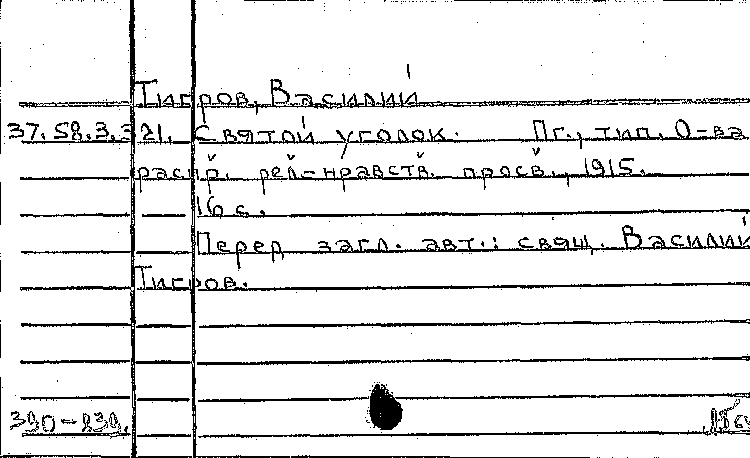 Тигров, Василий
37.58.3.321. Святой уголок. Пг., тип. О-ва
распр. рел-нравств. просв., 1915.
16 с.
Перед загл. авт.: свящ. Василий
Тигров.